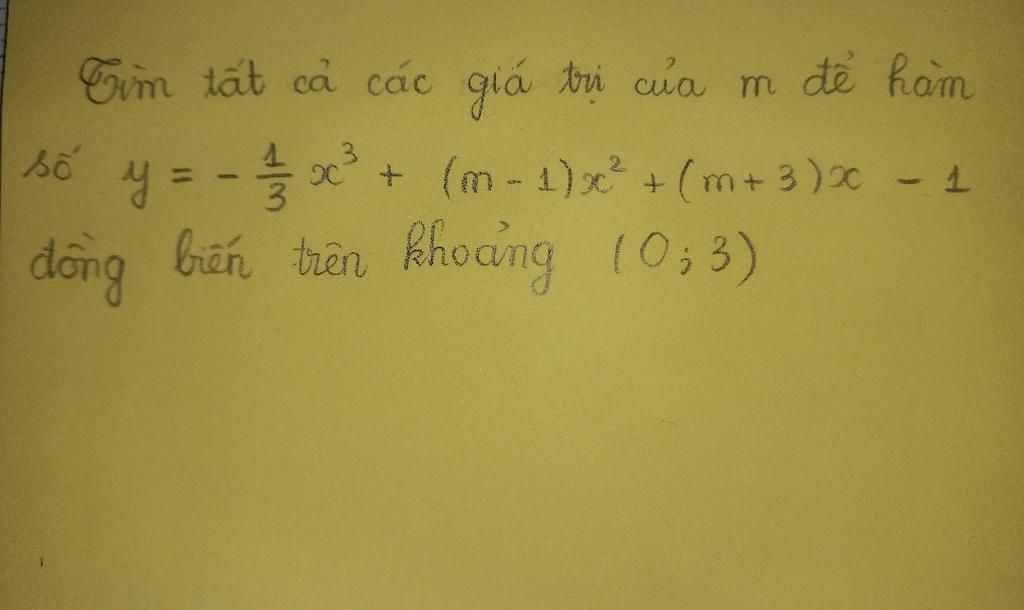 Tìm tất cả các giá trị của m để hàm
số y = - 1/3 x³ + (m - 1)x² + (m + 3)x - 1
đồng biến trên khoảng (0; 3)